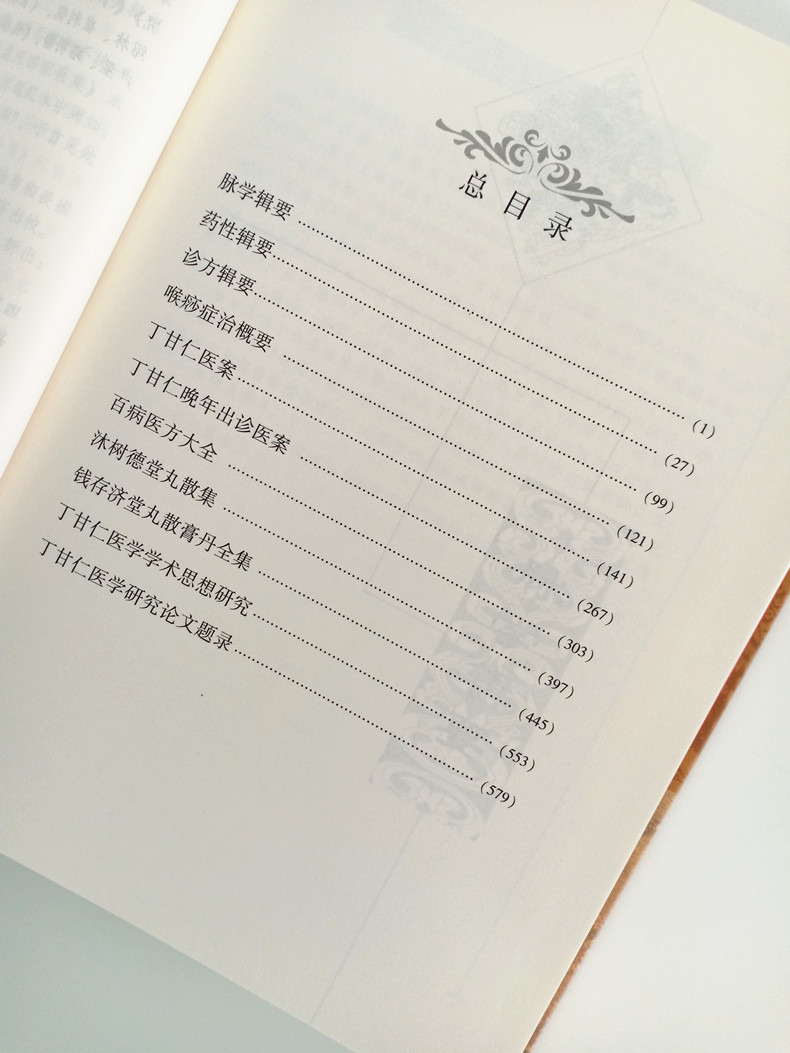 总目录
脉学辑要 …… (1)
药性辑要 …… (27)
诊方辑要 …… (99)
喉痧症治概要 …… (121)
丁甘仁医案 …… (141)
丁甘仁晚年出诊医案 …… (267)
百病医方大全 …… (303)
沐树德堂丸散集 …… (397)
钱存济堂丸散膏丹全集 …… (445)
丁甘仁医学学术思想研究 …… (553)
丁甘仁医学研究论文题录 …… (579)